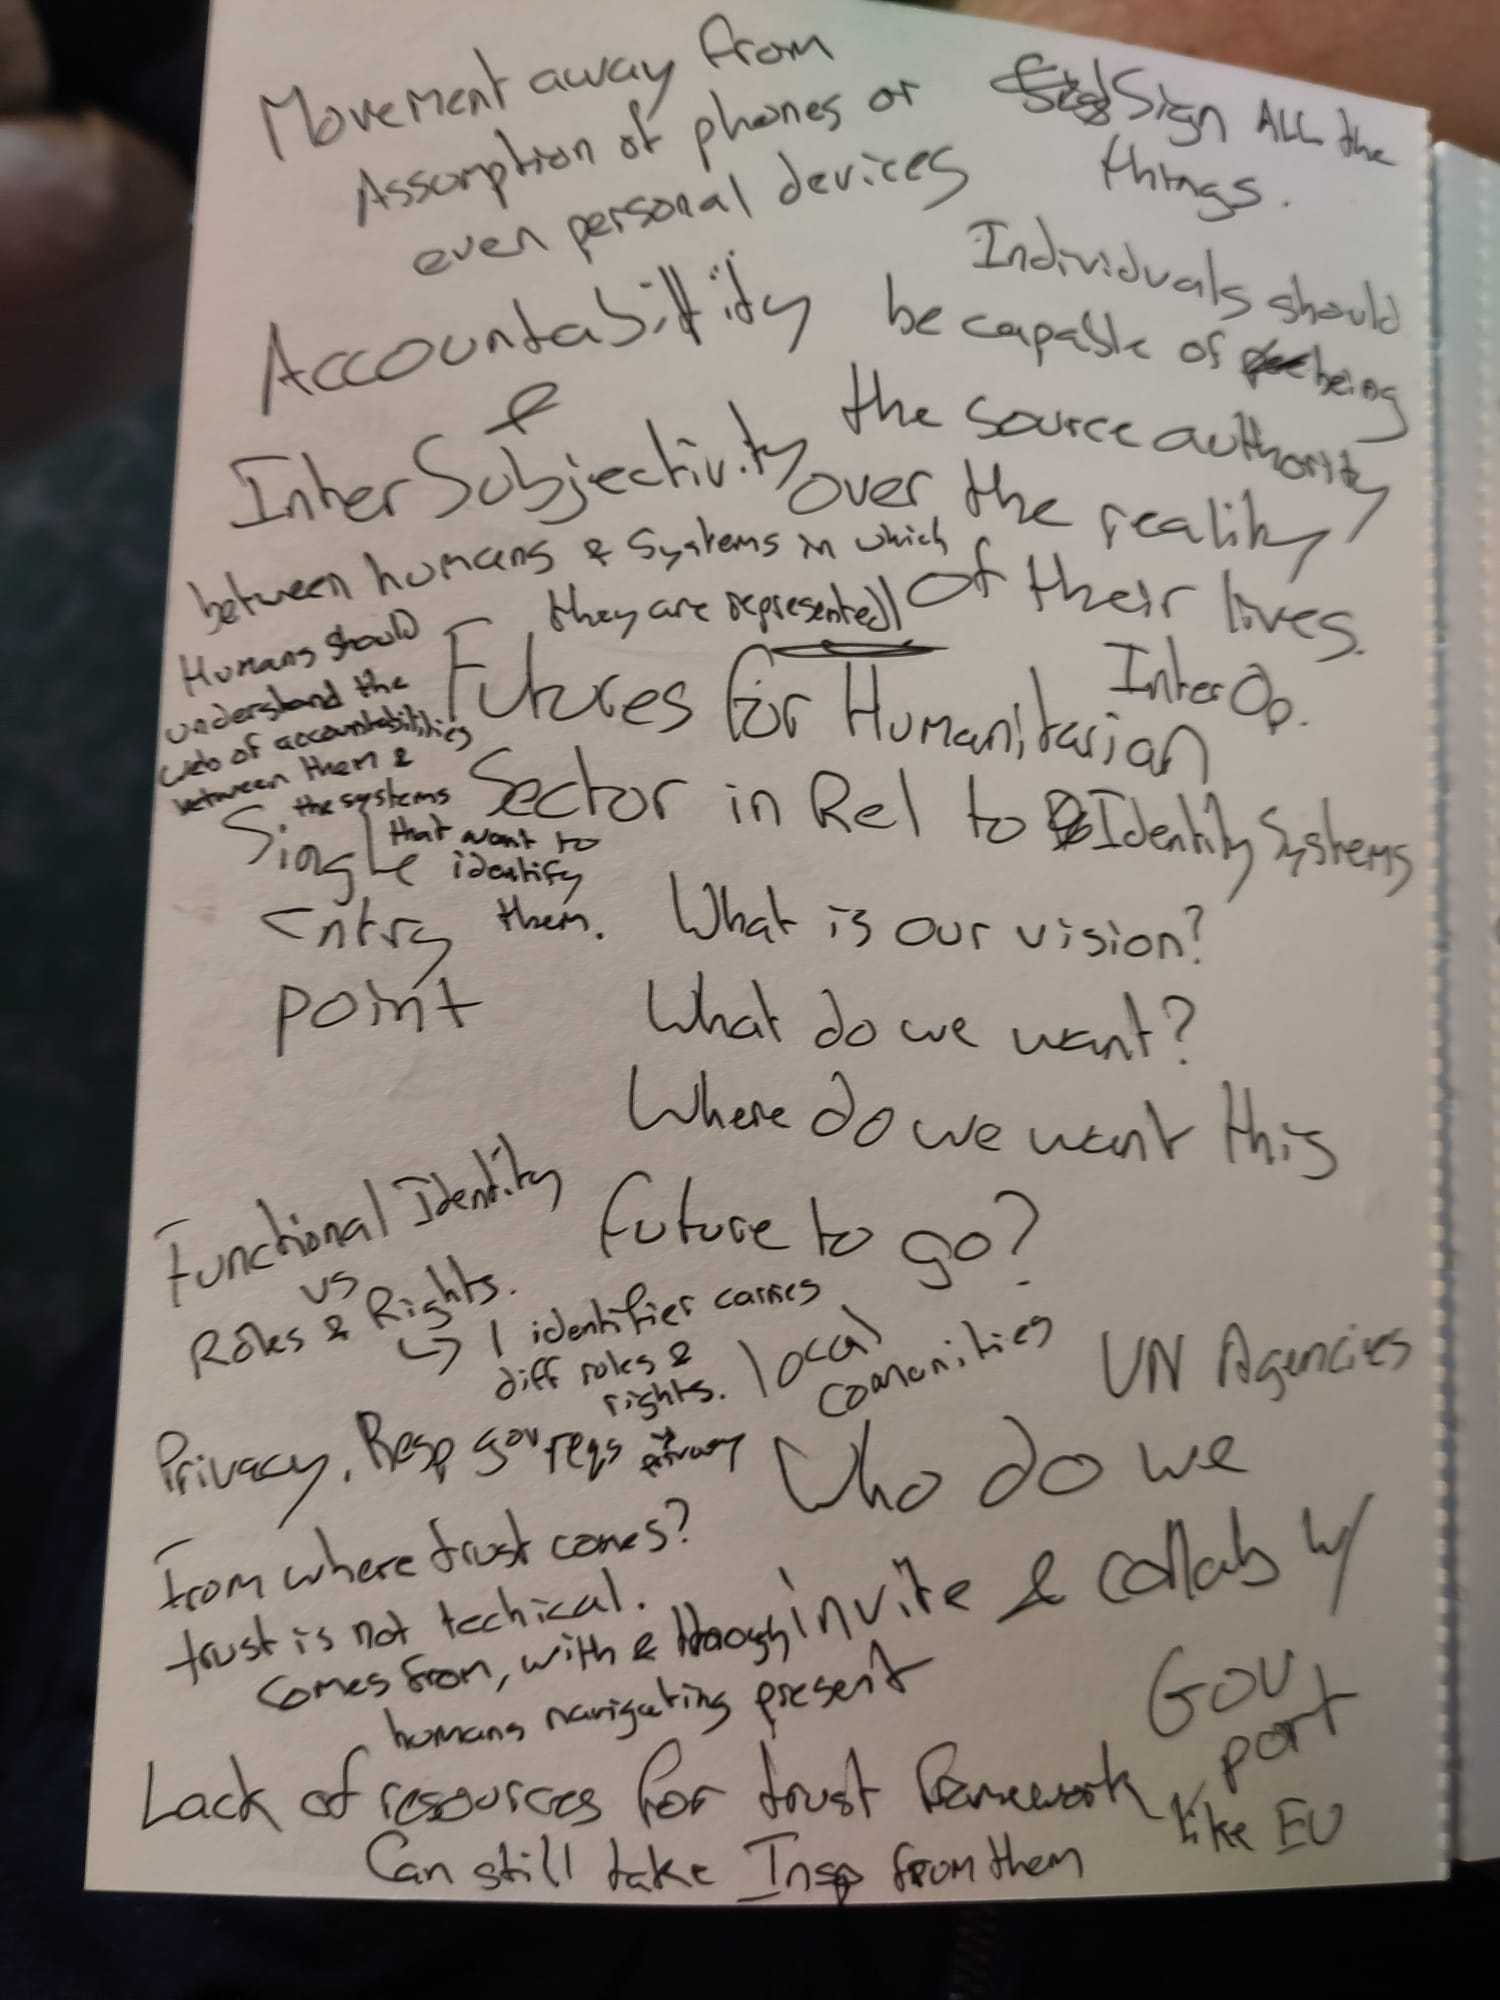 Movement away from
Assumption of phones or
even personal devices
Sign ALL the
things.
Accountability
&
InterSubjectivity
between humans & Systems in which
they are represented
Individuals should
be capable of being
the source authority
over the reality
of their lives.
InterOp.
Humans should
understand the
web of accountabilities
between them &
the systems
that want to
identify
them.
Futures for Humanitarian
Sector in Rel to Identity Systems
Single
Entry
point
What is our vision?
What do we want?
Where do we want this
future to go?
Functional Identity
vs
Roles & Rights.
↳ 1 identifier carries
diff roles &
rights.
local
comunities
UN Agencies
Privacy, Resp gov reqs privacy
Who do we
invite & collab w/
From where trust comes?
trust is not techical.
Comes from, with & though
humans navigating present
Gov
port
Lack of resources for trust framework
like EU
Can still take Insp from them